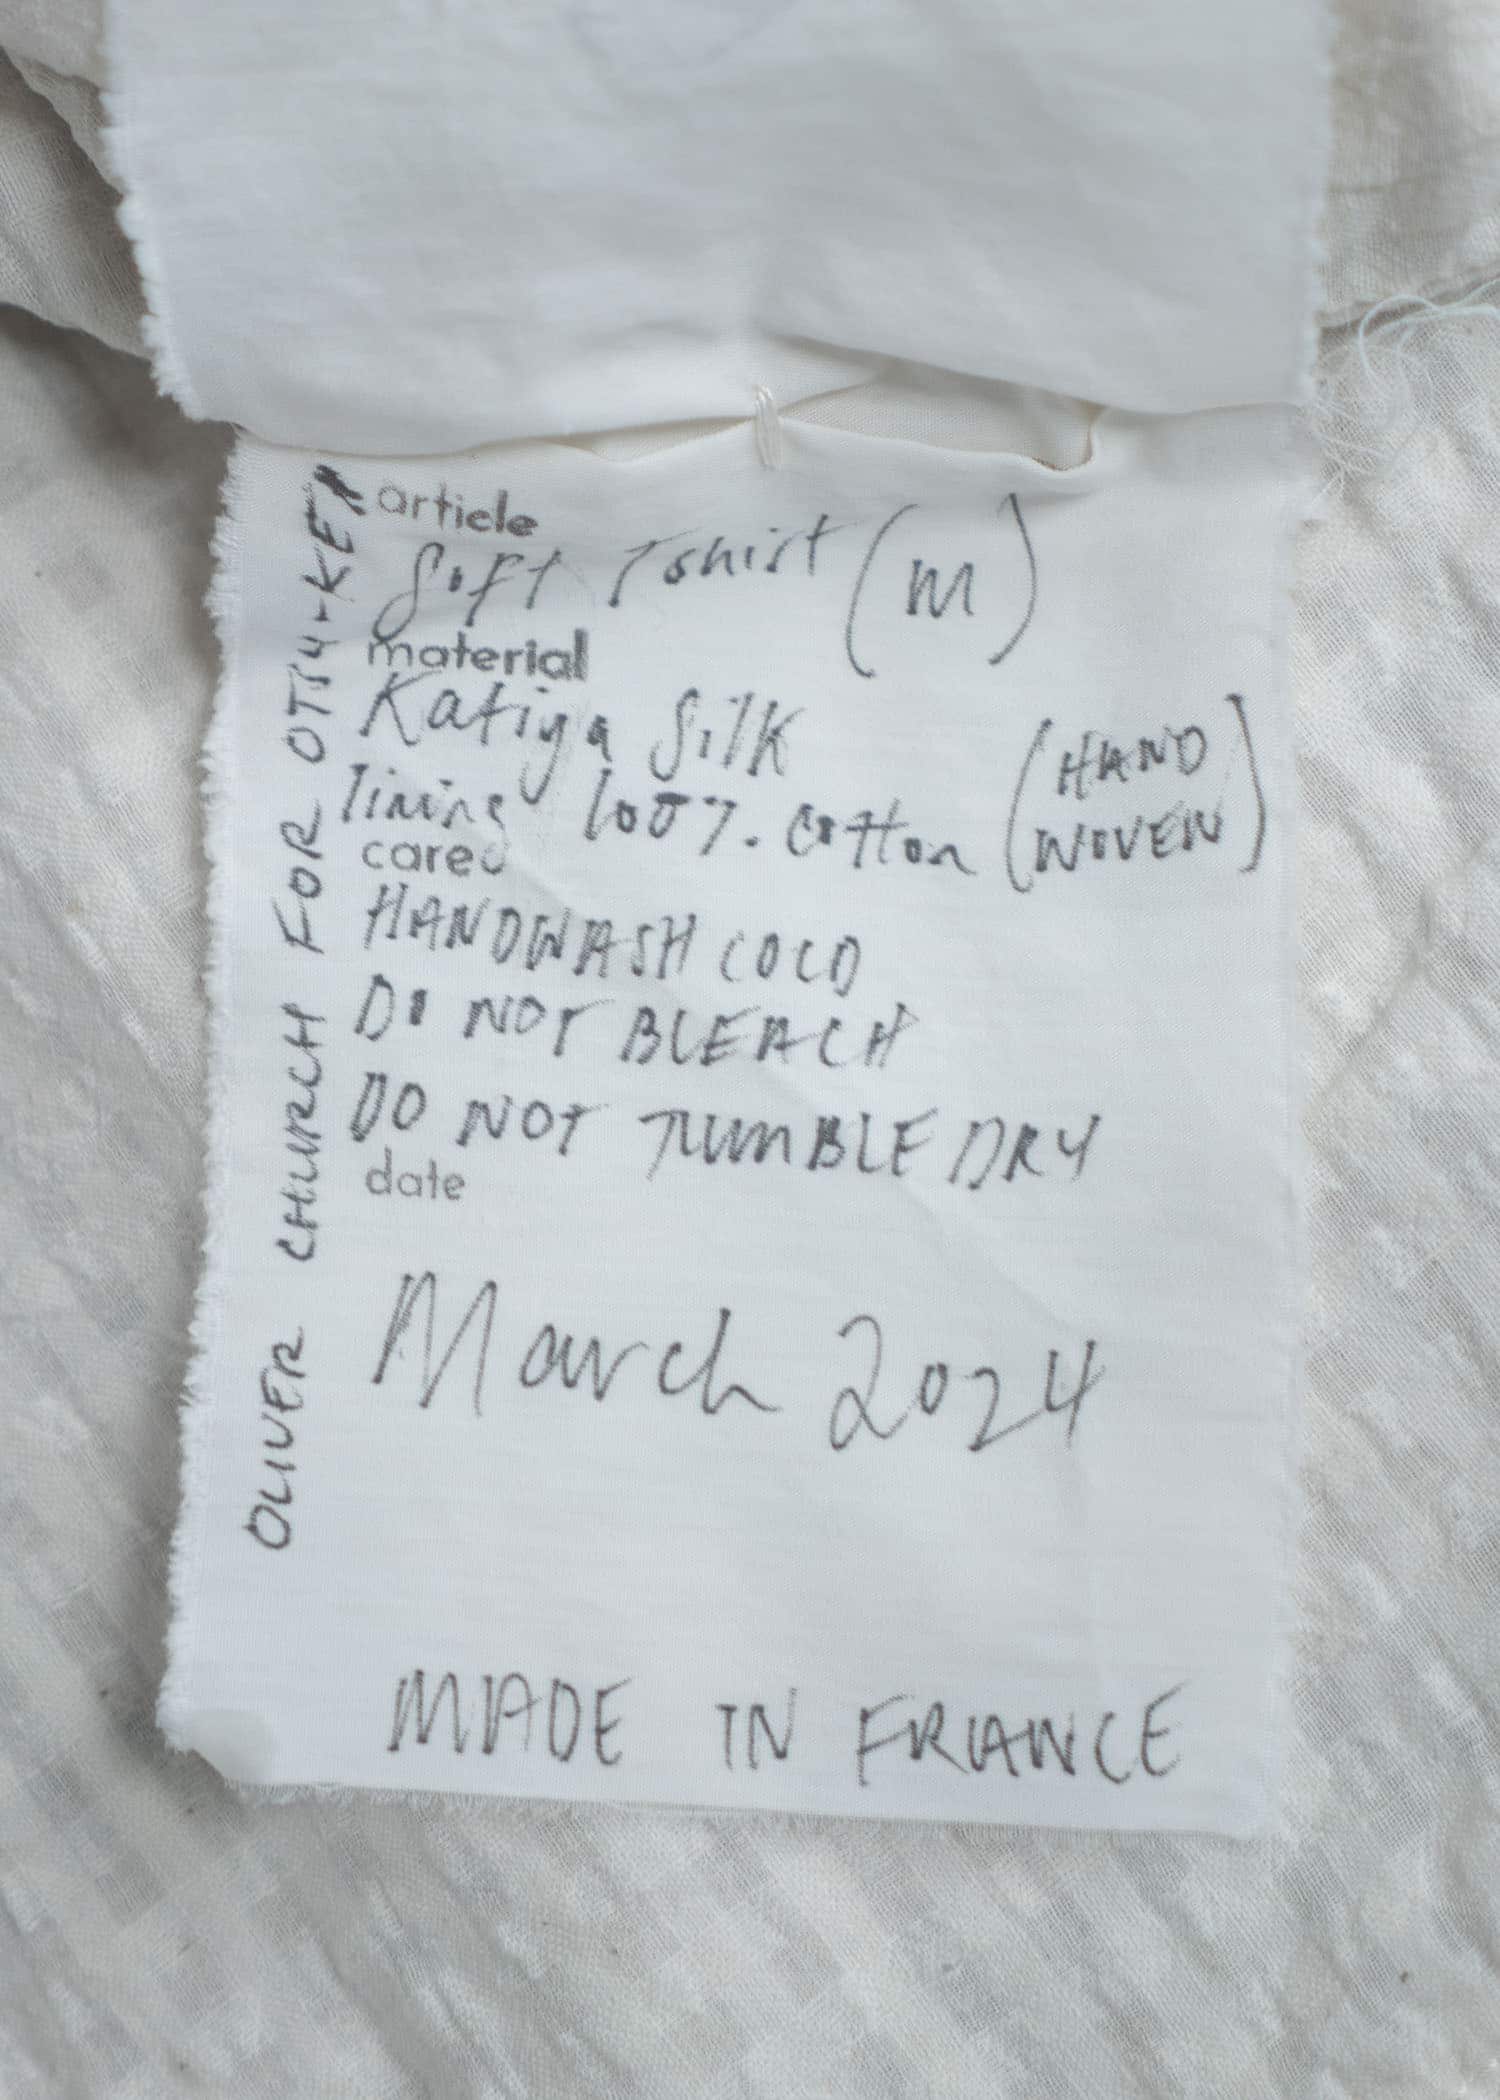 article
Soft Tshirt (M)
material
Katiya Silk
lining 100%. cotton (HAND WOVEN)
care
HANDWASH COLD
DO NOT BLEACH
DO NOT TUMBLE DRY
date
March 2024
MADE IN FRANCE
OLIVER CHURCH FOR